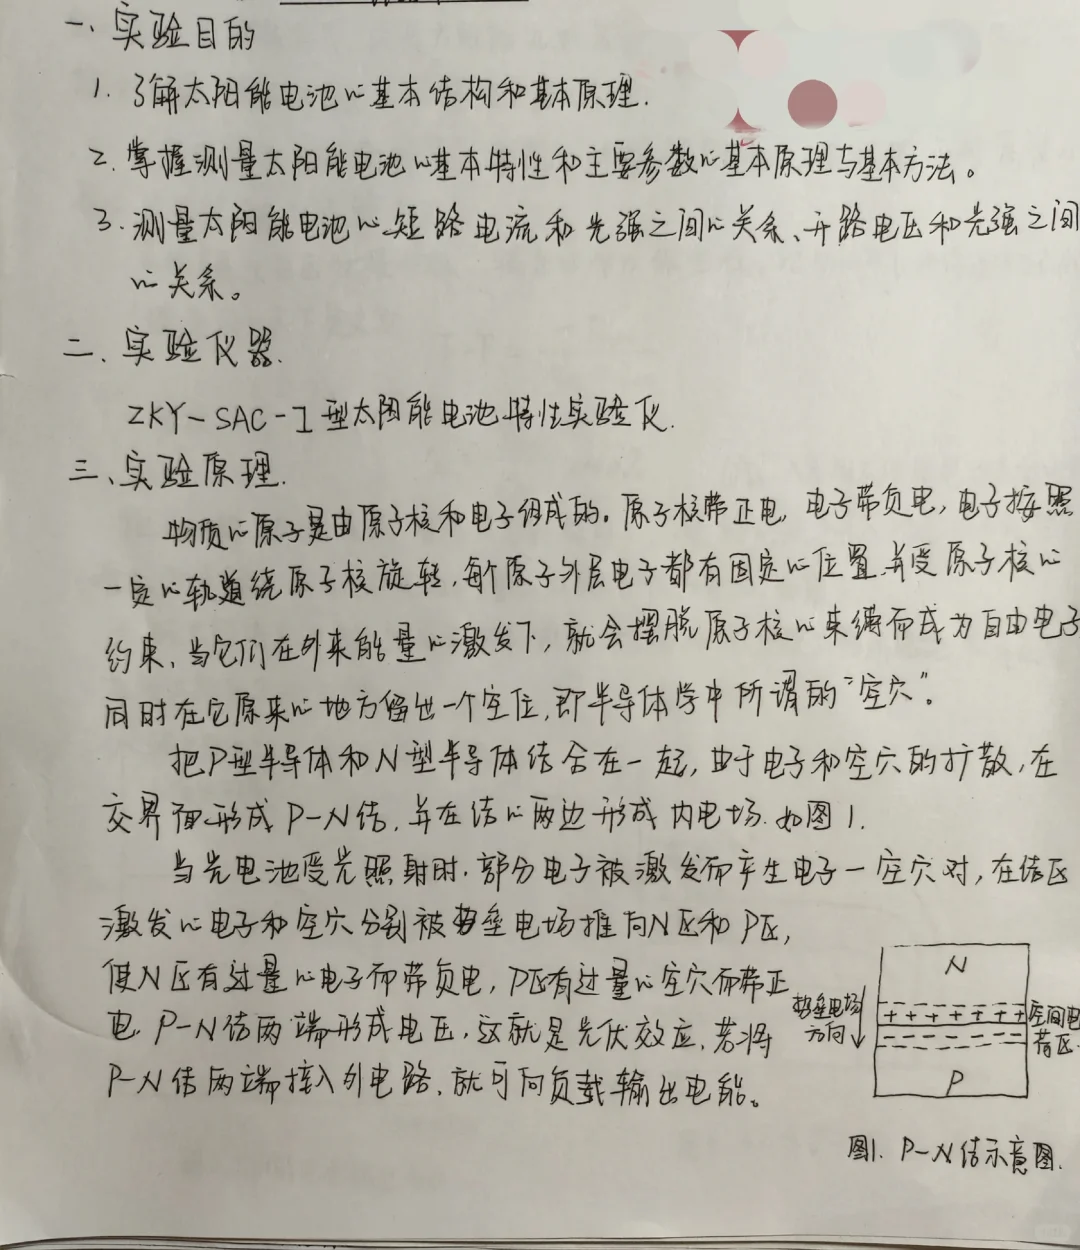 一、实验目的
1. 了解太阳能电池的基本结构和基本原理.
2. 掌握测量太阳能电池的基本特性和主要参数的基本原理与基本方法。
3. 测量太阳能电池的短路电流和光强之间的关系、开路电压和光强之间
的关系。
二、实验仪器.
ZKY-SAC-I型太阳能电池特性实验仪.
三、实验原理.
物质的原子是由原子核和电子组成的。原子核带正电, 电子带负电, 电子按照
一定的轨道绕原子核旋转, 每个原子外层电子都有固定的位置, 并受原子核的
约束、当它们在外来能量的激发下, 就会摆脱原子核的束缚而成为自由电子
同时在它原来的地方留出一个空位, 即半导体学中所谓的“空穴”。
把P型半导体和N型半导体结合在一起, 由于电子和空穴的扩散, 在
交界面形成P-N结, 并在结的两边形成内电场. 如图1.
当光电池受光照射时, 部分电子被激发而产生电子-空穴对, 在结区
激发的电子和空穴分别被势垒电场推向N区和P区,
使N区有过量的电子而带负电, P区有过量的空穴而带正
电. P-N结两端形成电压, 这就是光伏效应, 若将
P-N结两端接入外电路, 就可向负载输出电能。
N
势垒电场
方向
+ + + + + + +
空间电
荷区.
P
图1. P-N结示意图.